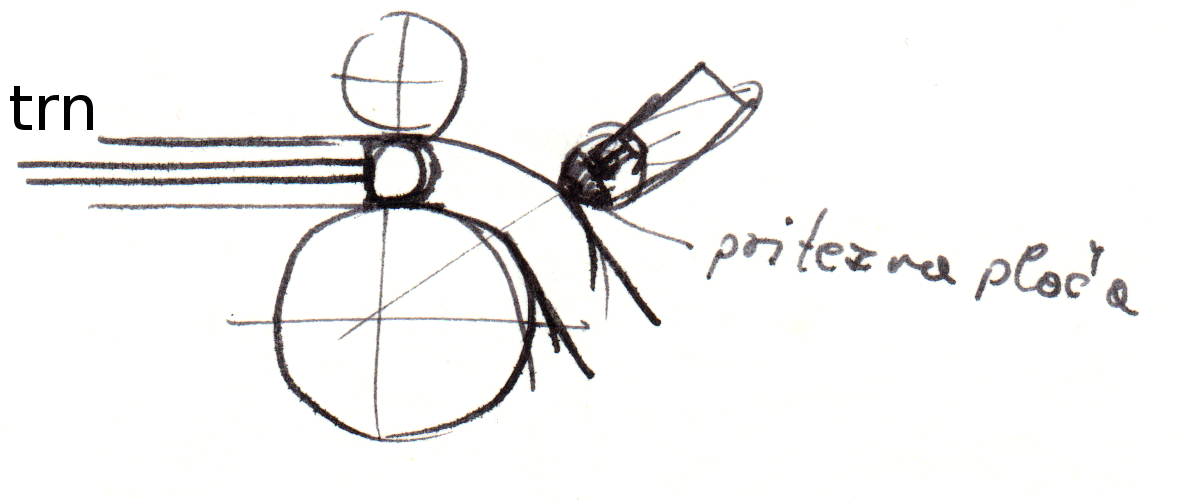 trn
pritezna ploča